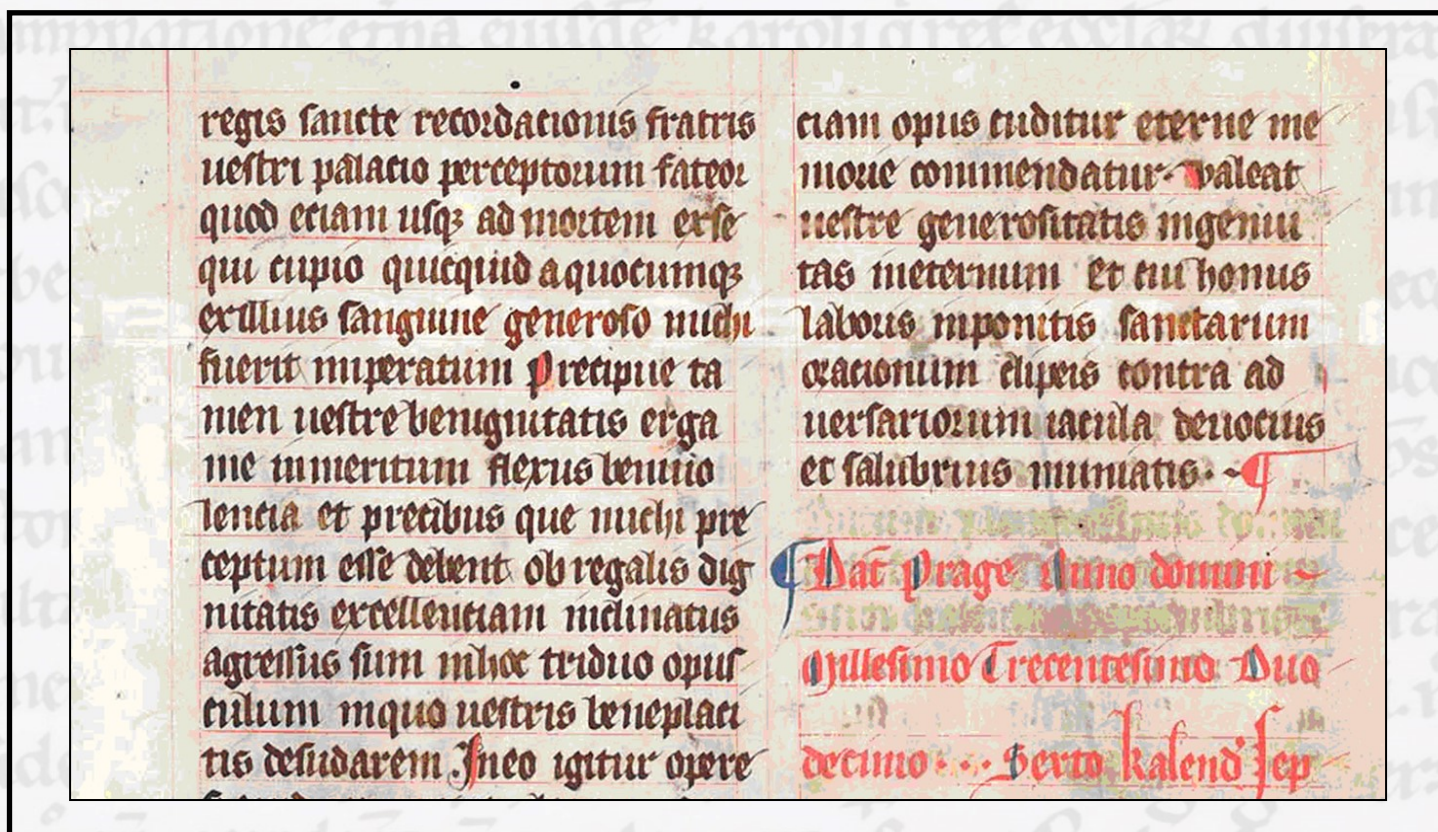 regis sancte recordacionis fratris
uestri palacio perceptorum fateor
quod eciam usqꝫ ad mortem exse
qui cupio quicquid a quocumqꝫ
ex illius sanguine generoso michi
fuerit imperatum Precipue ta
men uestre benignitatis erga
me inmeritum flexus beniuo
lencia et precibus que michi pre
ceptum esse debent ob regalis dig
nitatis excellenciam inclinatus
agressus sum in hoc triduo opus
culum in quo uestris beneplaci
tis desudarem. In eo igitur opere
ciam opus cuditur eterne me
morie commendatur· Valeat
uestre generositatis ingenui
tas in eternum Et cui honus
laboris inponitis sanctarum
oracionum clipeis contra ad
uersariorum iacula deuocius
et salubrius muniatis·
¶ Dat̄ Prage Anno domini
Millesimo Trecentesimo Duo
decimo · · · Sexto kalend̄ Sep